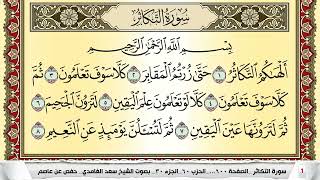 سُورَةُ التَّكَاثُرِ
بِسْمِ اللَّهِ الرَّحْمَٰنِ الرَّحِيمِ
أَلْهَاكُمُ التَّكَاثُرُ ١ حَتَّىٰ زُرْتُمُ الْمَقَابِرَ ٢ كَلَّا سَوْفَ تَعْلَمُونَ ٣ ثُمَّ
كَلَّا سَوْفَ تَعْلَمُونَ ٤ كَلَّا لَوْ تَعْلَمُونَ عِلْمَ الْيَقِينِ ٥ لَتَرَوُنَّ الْجَحِيمَ ٦
ثُمَّ لَتَرَوُنَّهَا عَيْنَ الْيَقِينِ ٧ ثُمَّ لَتُسْأَلُنَّ يَوْمَئِذٍ عَنِ النَّعِيمِ ٨
1 سورة التكاثر . الصفحة ٦٠٠ ... الحزب ٦٠ . الجزء ٣٠ . بصوت الشيخ سعد الغامدي . حفص عن عاصم